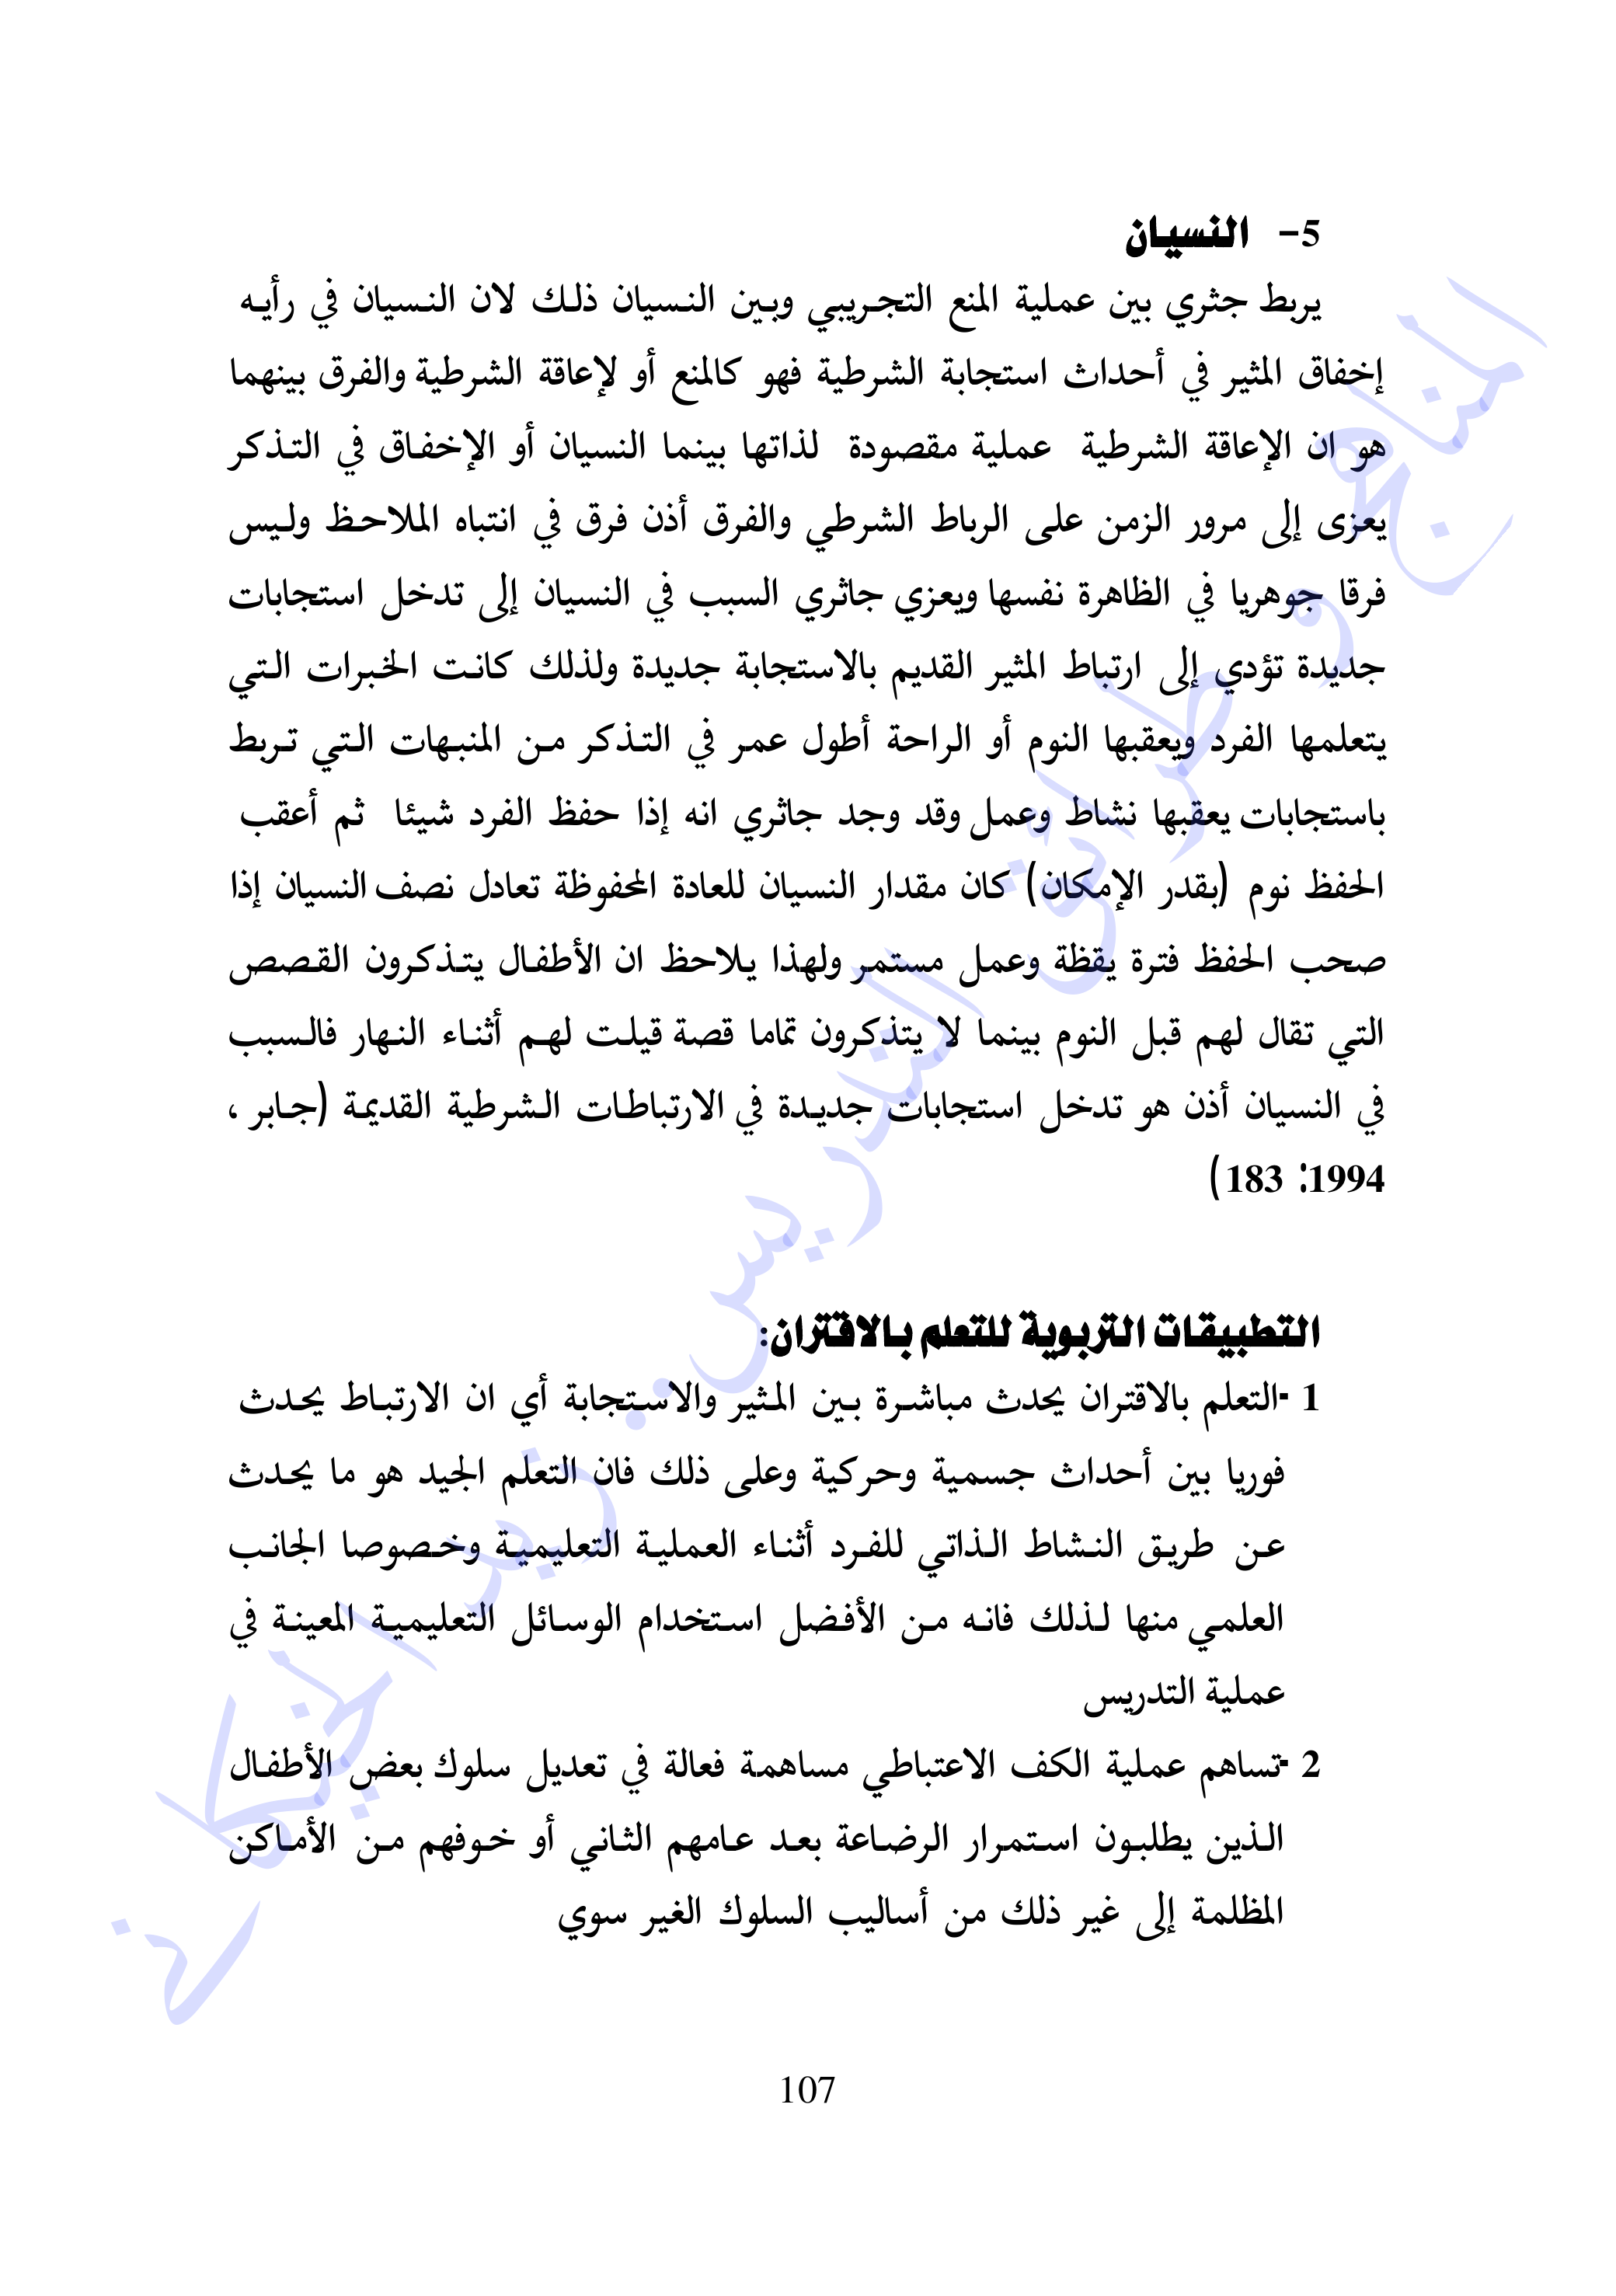 5- النسيان
يربط جثري بين عملية المنع التجريبي وبين النسيان ذلك لان النسيان في رأيه
إخفاق المثير في أحداث استجابة الشرطية فهو كالمنع أو لإعاقة الشرطية والفرق بينهما
هو ان الإعاقة الشرطية عملية مقصودة لذاتها بينما النسيان أو الإخفاق في التذكر
يعزى إلى مرور الزمن على الرباط الشرطي والفرق أذن فرق في انتباه الملاحظ وليس
فرقا جوهريا في الظاهرة نفسها ويعزي جاثري السبب في النسيان إلى تدخل استجابات
جديدة تؤدي إلى ارتباط المثير القديم بالاستجابة جديدة ولذلك كانت الخبرات التي
يتعلمها الفرد ويعقبها النوم أو الراحة أطول عمر في التذكر من المنبهات التي تربط
باستجابات يعقبها نشاط وعمل وقد وجد جاثري انه إذا حفظ الفرد شيئا ثم أعقب
الحفظ نوم (بقدر الإمكان) كان مقدار النسيان للعادة المحفوظة تعادل نصف النسيان إذا
صحب الحفظ فترة يقظة وعمل مستمر ولهذا يلاحظ ان الأطفال يتذكرون القصص
التي تقال لهم قبل النوم بينما لا يتذكرون تماما قصة قيلت لهم أثناء النهار فالسبب
في النسيان أذن هو تدخل استجابات جديدة في الارتباطات الشرطية القديمة (جابر ،
1994: 183)
التطبيقات التربوية للتعلم بالاقتران:
1 -التعلم بالاقتران يحدث مباشرة بين المثير والاستجابة أي ان الارتباط يحدث
فوريا بين أحداث جسمية وحركية وعلى ذلك فان التعلم الجيد هو ما يحدث
عن طريق النشاط الذاتي للفرد أثناء العملية التعليمية وخصوصا الجانب
العلمي منها لذلك فانه من الأفضل استخدام الوسائل التعليمية المعينة في
عملية التدريس
2 -تساهم عملية الكف الاعتباطي مساهمة فعالة في تعديل سلوك بعض الأطفال
الذين يطلبون استمرار الرضاعة بعد عامهم الثاني أو خوفهم من الأماكن
المظلمة إلى غير ذلك من أساليب السلوك الغير سوي
107
المناهج وطرائق التدريس.. زيد الخيكاني